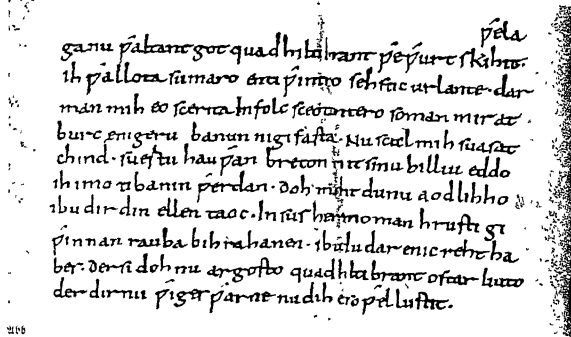 ƿ́ela
ganu ƿ́altant got quad hiltibrant ƿ́eƿ́urt skihit.
ih ƿ́allota sumaro enti ƿ́intro sehstic urlante · dar
man mih eo scerita In folc sceotantero so man mir at
burc enigeru banun ni gifasta · Nu scal mih suasat
chind · suertu hauƿ́an breton mit sinu billiu eddo
ih imo ti banin ƿ́erdan · doh maht du nu aodlihho
ibu dir din ellen taoc · In sus heremo man hrusti gi
ƿ́innan rauba bihrahanen · ibu du dar enic reht ha
bes · der si doh nu argosto quad hiltibrant ostar liuto
der dir nu ƿ́iges ƿ́arne nu dih es so ƿ́el lustit ·
Abb